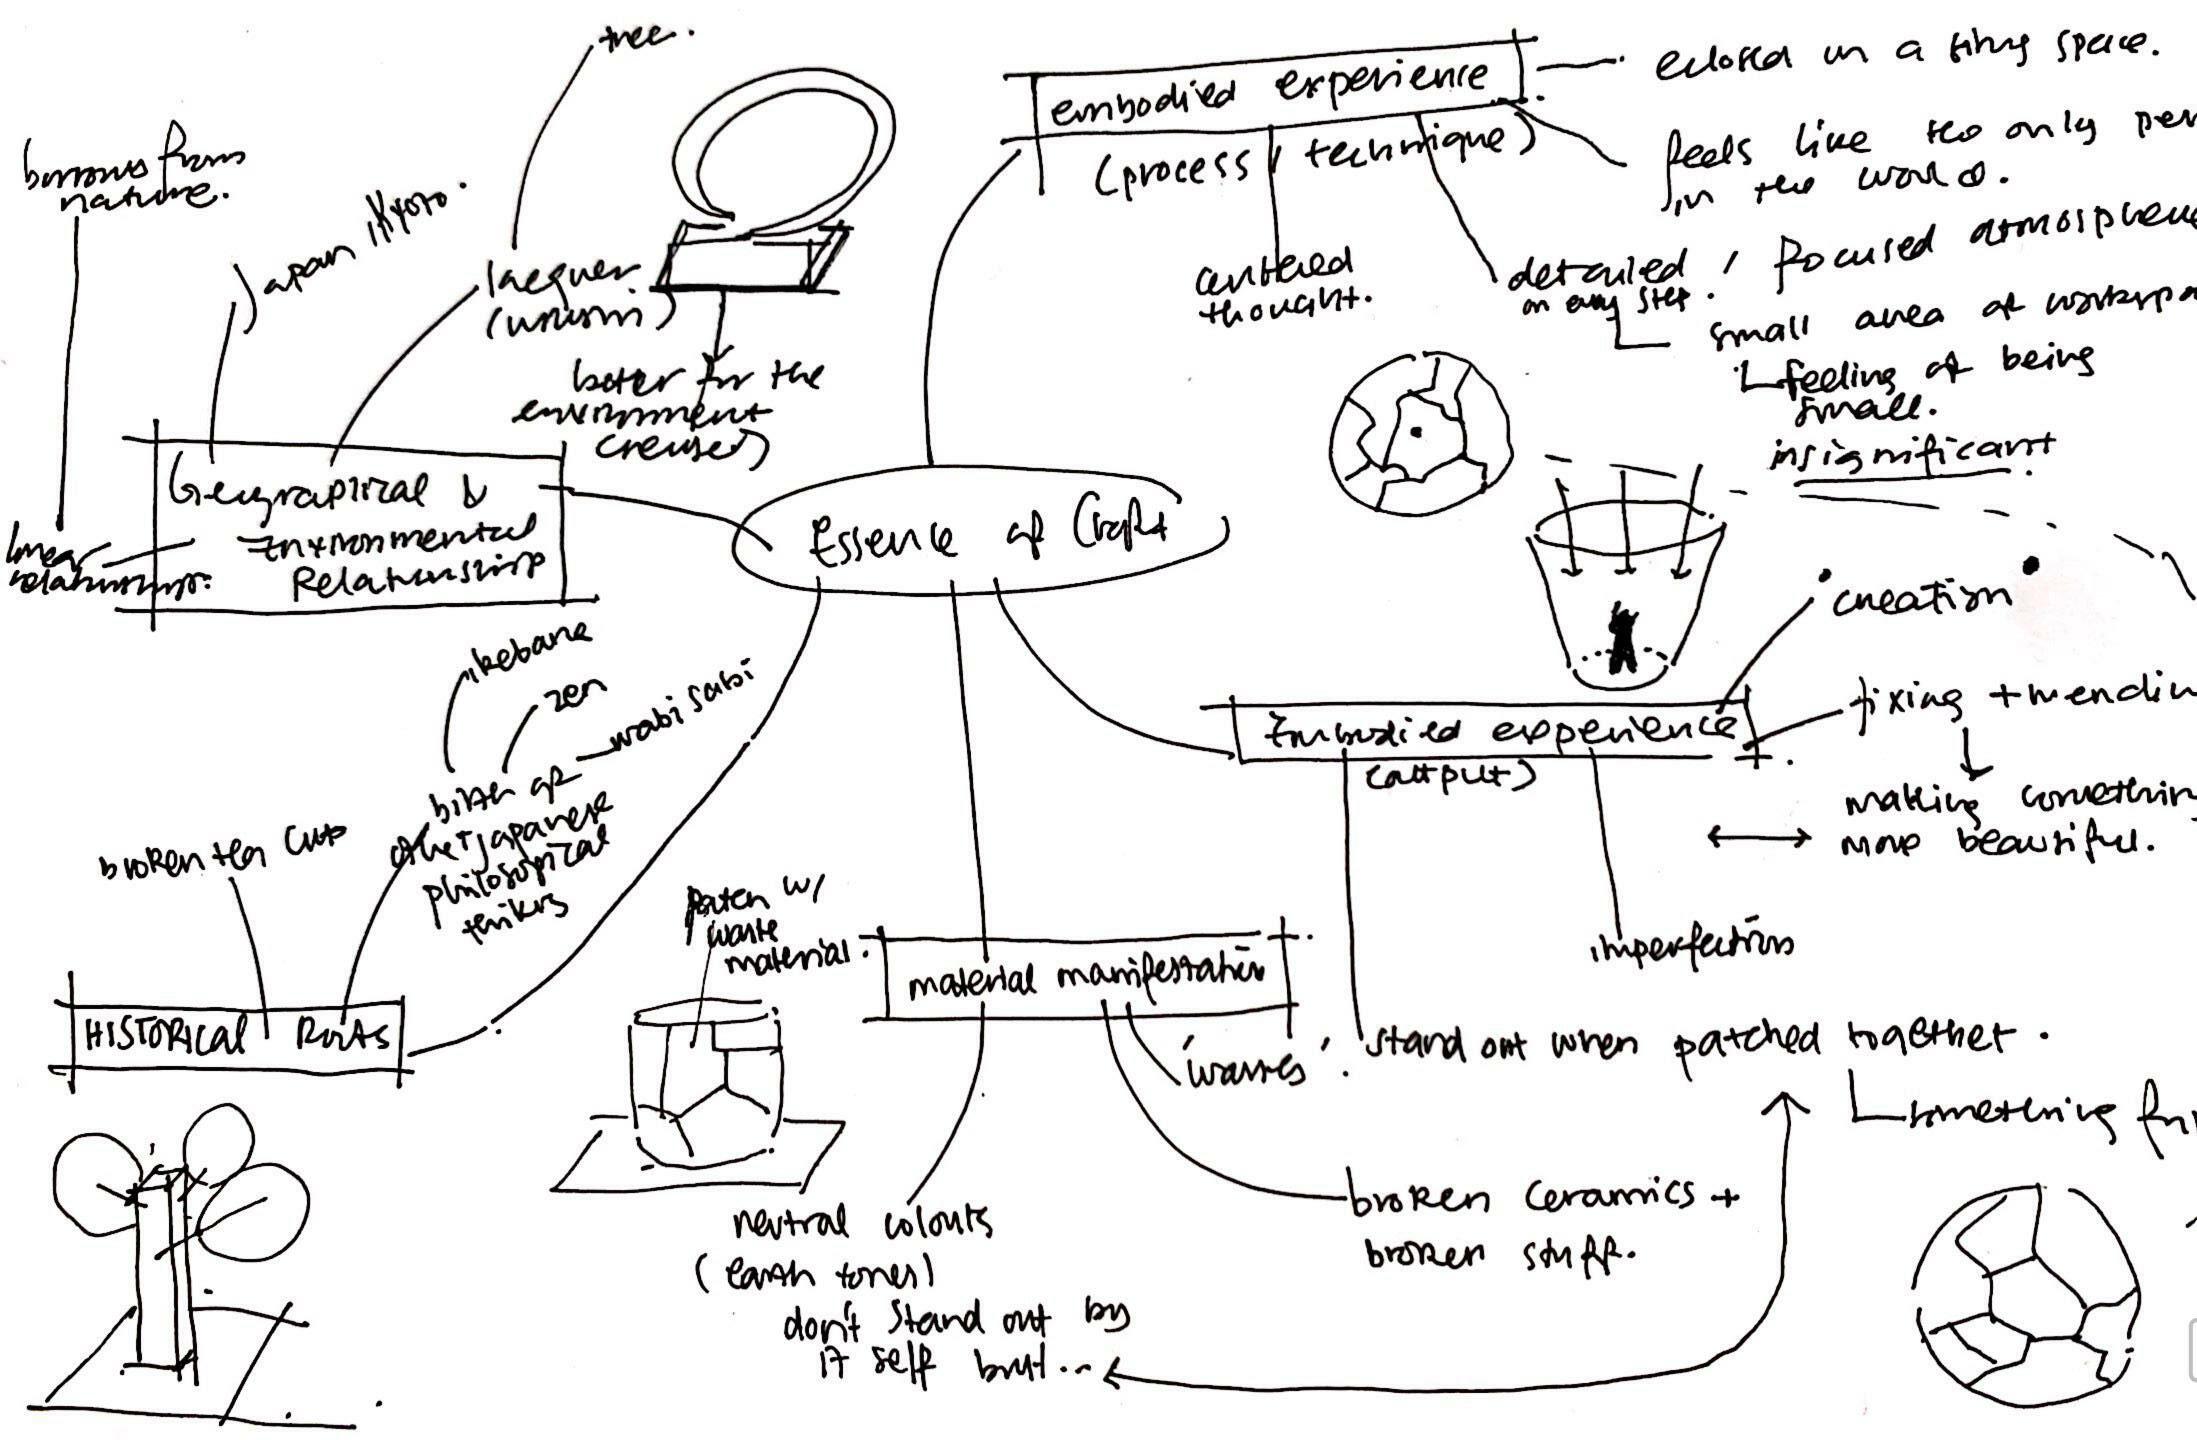 tree.
embodied experience
(process / technique)
enclosed in a tiny space.
feels like the only per
in the world.
centered
thought.
detailed / focused atmosphere
on any step.
small area of workspa
feeling of being
small.
insignificant
borrows from
nature.
Japan / Kyoto.
lacquer
(urushi)
better for the
environment
(reuse)
Geographical &
Environmental
Relationship
relationship.
Essence of Craft
creation
fixing + mendin
making somethin
more beautiful.
Embodied experience
(output)
imperfection
stand out when patched together.
something
ikebana
zen
wabi sabi
birth of
other Japanese
philosophical
broken tea cup
HISTORICAL Roots
waste
material.
material manifestation
'wastes'
neutral colours
(earth tones)
don't stand out by
it self but...
broken ceramics +
broken stuff.